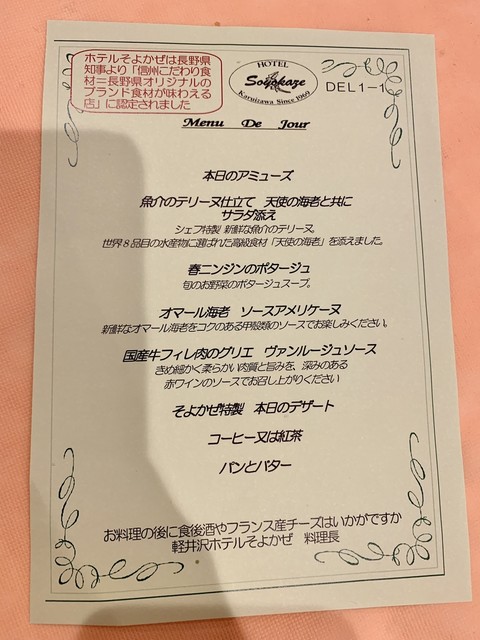 ホテルそよかぜは長野県
知事より「信州こだわり食
材＝長野県オリジナルの
ブランド食材が味わえる
店」に認定されました
HOTEL
Soyokaze
Karuizawa Since 1969
DEL 1-1
Menu De Jour
本日のアミューズ
魚介のテリーヌ仕立て 天使の海老と共に
サラダ添え
シェフ特製 新鮮な魚介のテリーヌ。
世界8品目の水産物に選ばれた高級食材「天使の海老」を添えました。
春ニンジンのポタージュ
旬のお野菜のポタージュスープ。
オマール海老 ソースアメリケーヌ
新鮮なオマール海老をコクのある甲殻類のソースでお楽しみください。
国産牛フィレ肉のグリエ ヴァンルージュソース
きめ細かく柔らかい肉質と旨みを、深みのある
赤ワインのソースでお召し上がりください
そよかぜ特製 本日のデザート
コーヒー又は紅茶
パンとバター
お料理の後に食後酒やフランス産チーズはいかがですか
軽井沢ホテルそよかぜ 料理長